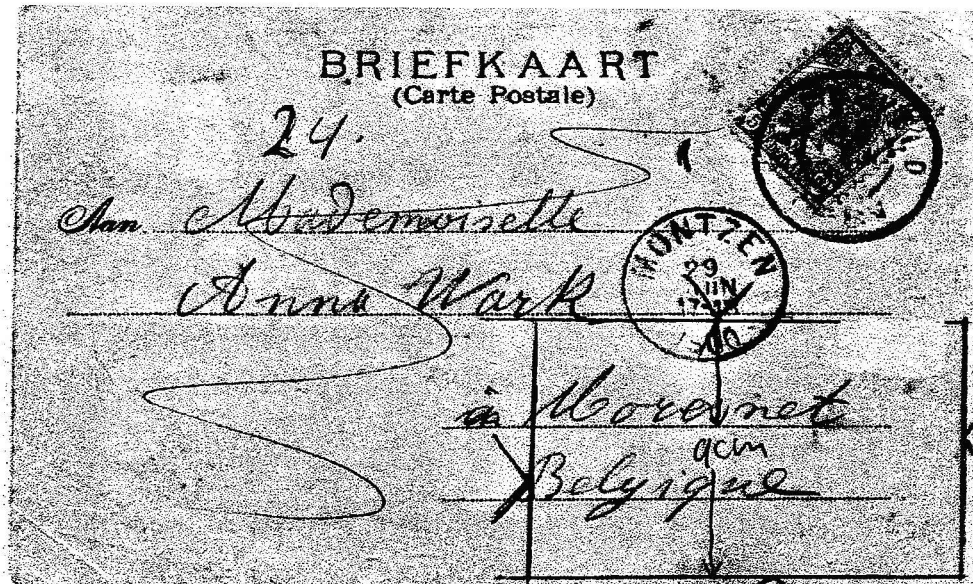 BRIEFKAART
(Carte Postale)
24.
Aan Mademoiselle
Anna Wark
MONTZEN
29
JUIN
à Moresnet
9cm
Belgique